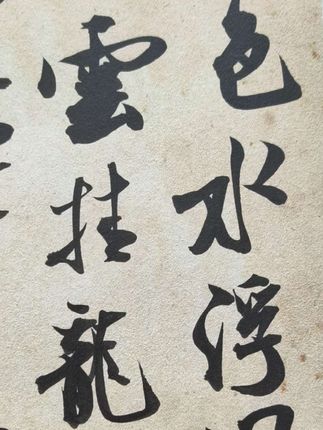 色水浮
雲挂龍